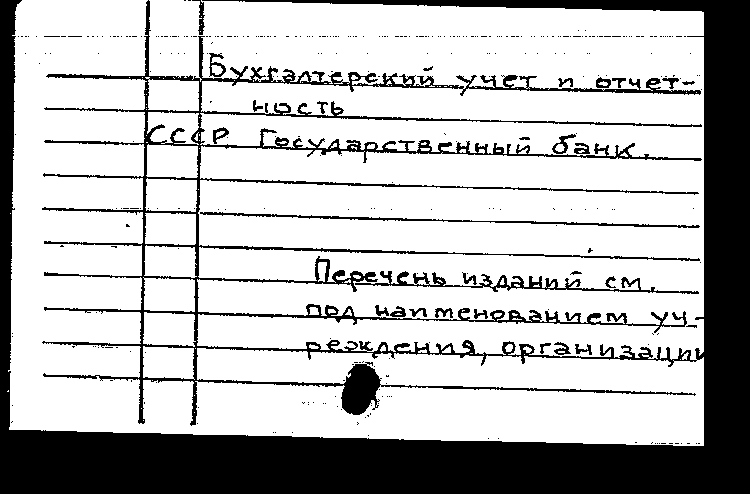 Бухгалтерский учет и отчет-
ность
СССР. Государственный банк.
Перечень изданий см.
под наименованием уч-
реждения, организации